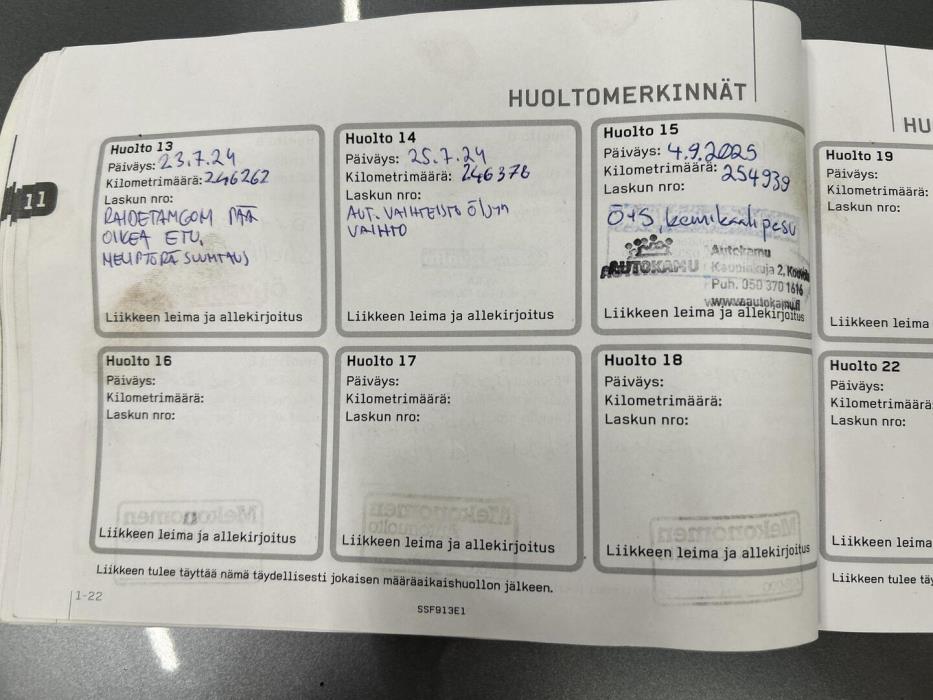 HUOLTOMERKINNÄT
11
Huolto 13
Päiväys: 23.7.24
Kilometrimäärä: 246262
Laskun nro:
RAIDETAMGOM PÄÄ
OIKEA ETU,
NELIPYÖRÄ SUUNTAUS
Liikkeen leima ja allekirjoitus
Huolto 14
Päiväys: 25.7.24
Kilometrimäärä: 246376
Laskun nro:
AUT. VAIHTEISTO ÖLJYN
VAIHTO
Liikkeen leima ja allekirjoitus
Huolto 15
Päiväys: 4.9.2025
Kilometrimäärä: 254939
Laskun nro:
Ö+S, kemikaalipesu
AUTOKAMU
Autokamu
Kaupinkuja 2,
Puh. 050 370 1616
www.autokamu.fi
Liikkeen leima ja allekirjoitus
Huolto 16
Päiväys:
Kilometrimäärä:
Laskun nro:
Mekonomen
Liikkeen leima ja allekirjoitus
Huolto 17
Päiväys:
Kilometrimäärä:
Laskun nro:
Mekonomen
Liikkeen leima ja allekirjoitus
Huolto 18
Päiväys:
Kilometrimäärä:
Laskun nro:
Mekonomen
Liikkeen leima ja allekirjoitus
Liikkeen tulee täyttää nämä täydellisesti jokaisen määräaikaishuollon jälkeen.
1-22
SSF913E1
HU
Huolto 19
Päiväys:
Kilometrimäärä:
Laskun nro:
Liikkeen leima
Huolto 22
Päiväys:
Kilometrimäärä:
Laskun nro:
Liikkeen leima
Liikkeen tulee täy